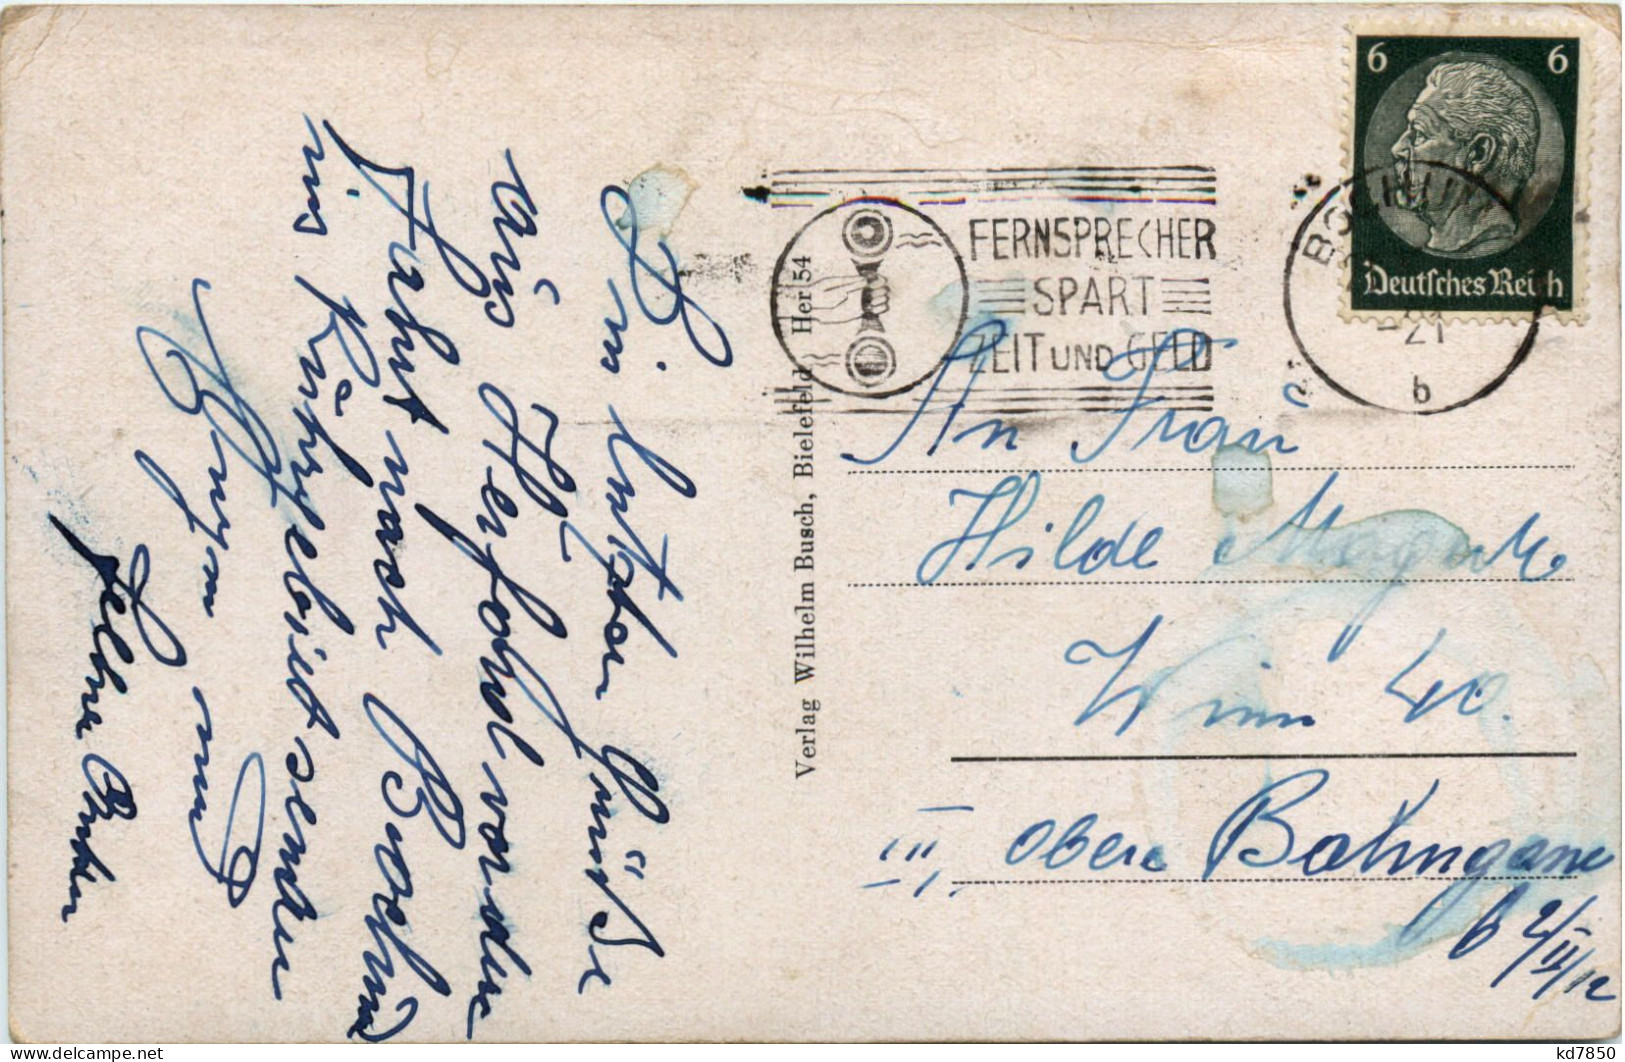 Die letzten Grüße
aus Herford vor der
Fahrt nach Bochum
ins Ruhrgebiet senden
Verlag Wilhelm Busch, Bielefeld Her 54
FERNSPRECHER
SPART
ZEIT UND GELD
BOCHUM
21
b
6 6
Deutsches Reich
An Frau
Hilde
Wien 40.
III
obere Bahngasse
6 2/II/12
kd7850